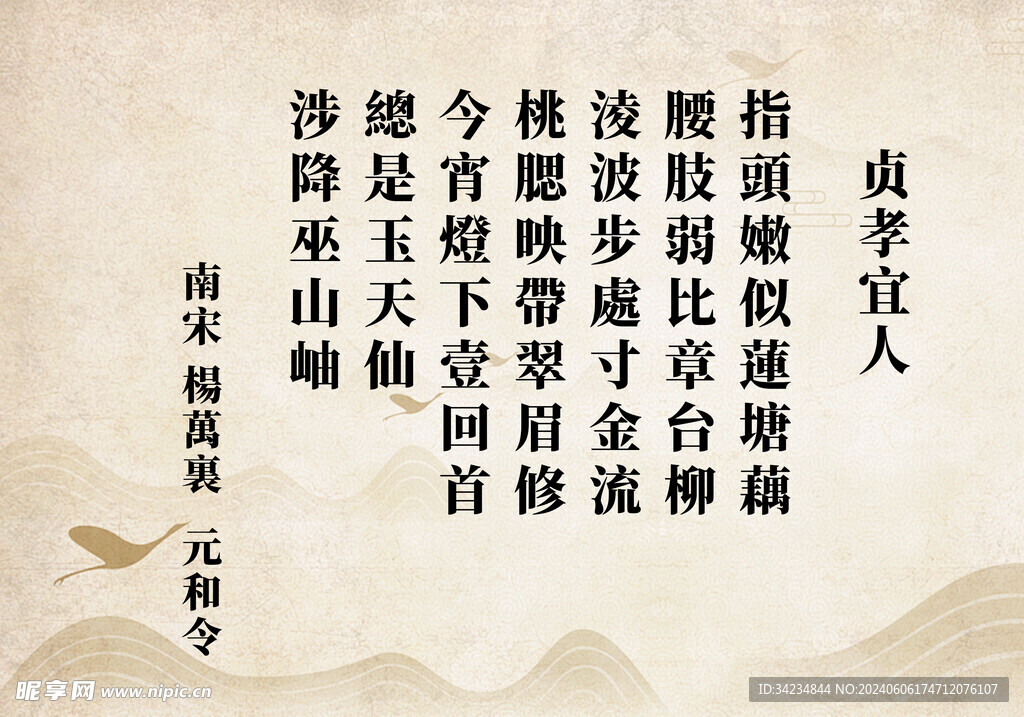 贞孝宜人
指頭嫩似蓮塘藕
腰肢弱比章台柳
淩波步處寸金流
桃腮映帶翠眉修
今宵燈下壹回首
總是玉天仙
涉降巫山岫
南宋 楊萬裏 元和令
昵享网 www.nipic.cn
ID:34234844 NO:20240606174712076107